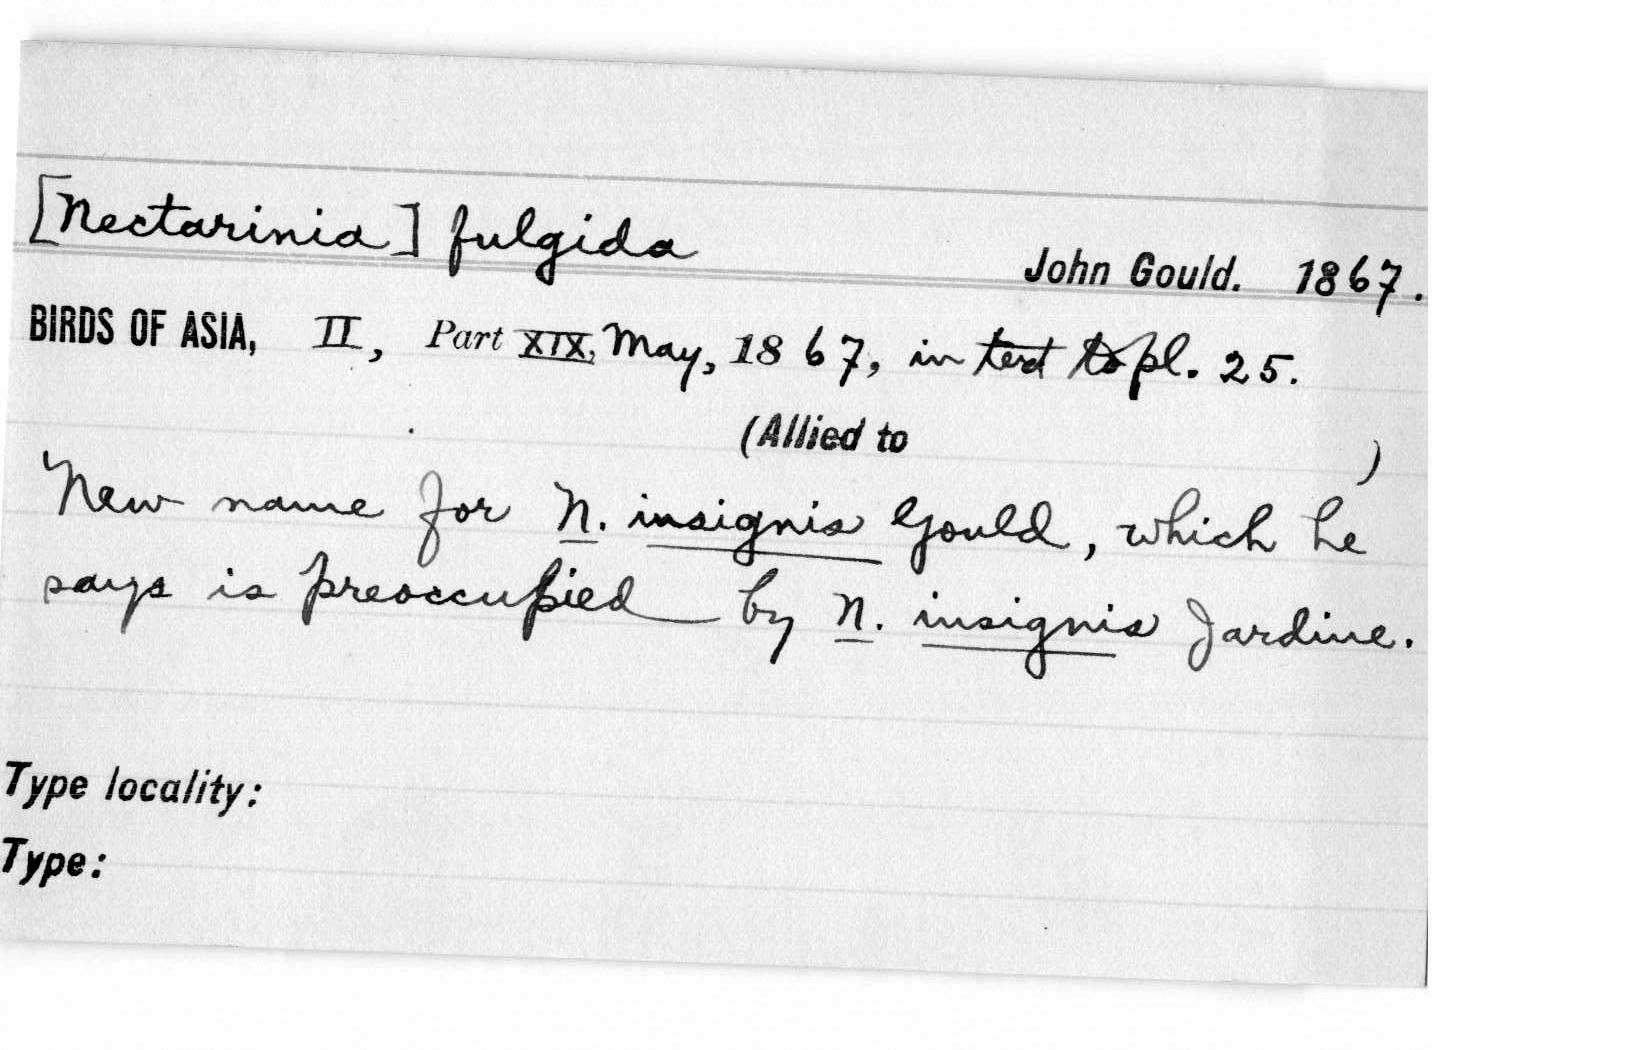 [Nectarinia] fulgida
John Gould. 1867.
BIRDS OF ASIA, II, Part XIX, May, 1867, in text to pl. 25.
(Allied to )
New name for N. insignis Gould, which he
says is preoccupied by N. insignis Jardine.
Type locality:
Type: